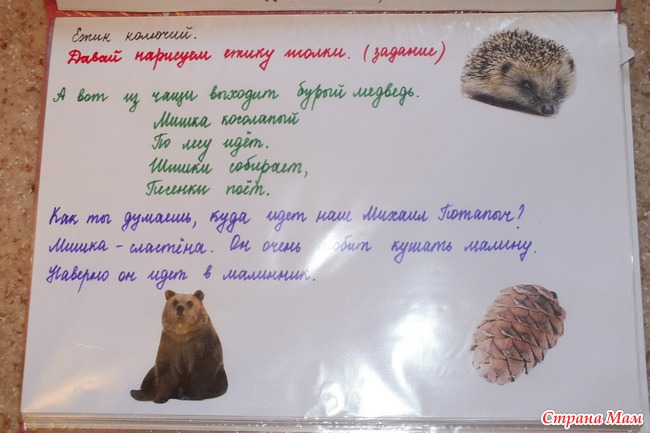 Ежик колючий.
Давай нарисуем ежику иголки. (задание)
А вот из чащи выходит бурый медведь.
Мишка косолапый
По лесу идёт.
Шишки собирает,
Песенки поёт.
Как ты думаешь, куда идет наш Михаил Потапыч?
Мишка - сластёна. Он очень любит кушать малину.
Наверно он идет в малинник.
Страна Мам